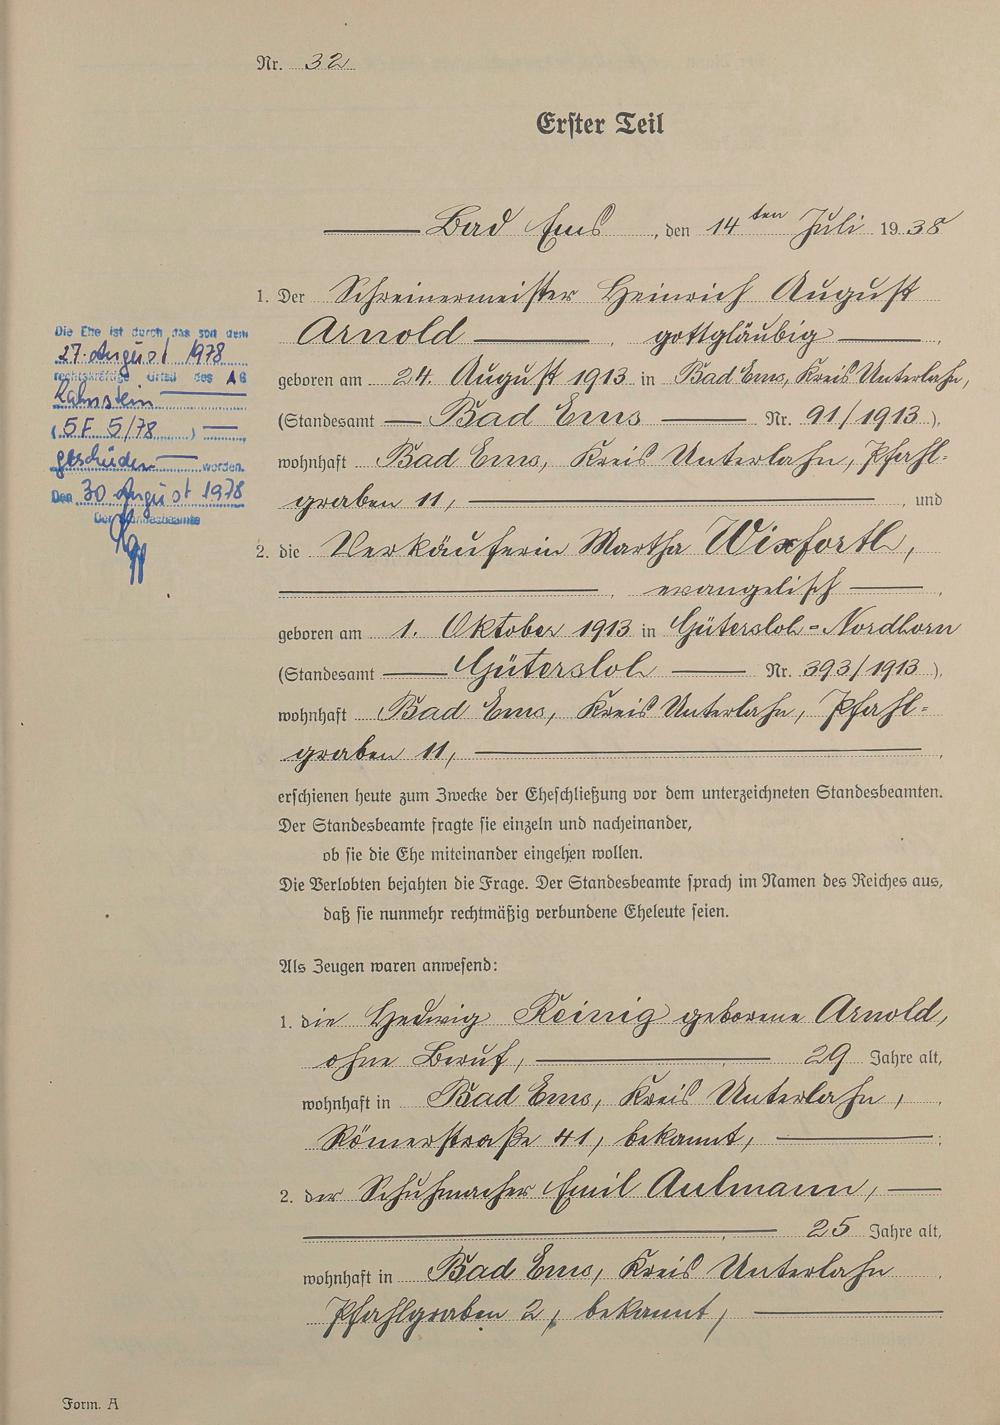 Nr. 32
Erster Teil
Bad Ems, den 14ten Juli 1938
1. Der Schreinermeister Heinrich August
Arnold, gottgläubig,
geboren am 24. August 1913 in Bad Ems, Kreis Unterlahn,
(Standesamt Bad Ems Nr. 91/1913),
wohnhaft Bad Ems, Kreis Unterlahn, Pfahl-
graben 11, , und
2. die Verkäuferin Martha Wixforth,
, evangelisch,
geboren am 1. Oktober 1913 in Gütersloh-Nordhorn
(Standesamt Gütersloh Nr. 393/1913),
wohnhaft Bad Ems, Kreis Unterlahn, Pfahl-
graben 11, ,
erschienen heute zum Zwecke der Eheschließung vor dem unterzeichneten Standesbeamten.
Der Standesbeamte fragte sie einzeln und nacheinander,
ob sie die Ehe miteinander eingehen wollen.
Die Verlobten bejahten die Frage. Der Standesbeamte sprach im Namen des Reiches aus,
daß sie nunmehr rechtmäßig verbundene Eheleute seien.
Als Zeugen waren anwesend:
1. die Hedwig Reinig geborene Arnold,
ohne Beruf, 29 Jahre alt,
wohnhaft in Bad Ems, Kreis Unterlahn,
Römerstraße 41, bekannt, ;
2. der Schuhmacher Emil Aulmann,
25 Jahre alt,
wohnhaft in Bad Ems, Kreis Unterlahn
Pfahlgraben 2, bekannt,
Die Ehe ist durch das seit dem
27. August 1978
rechtskräftige Urteil des AG
Lahnstein
(5 F 5/78)
geschieden worden.
Den 30 August 1978
Der Standesbeamte
Form. A